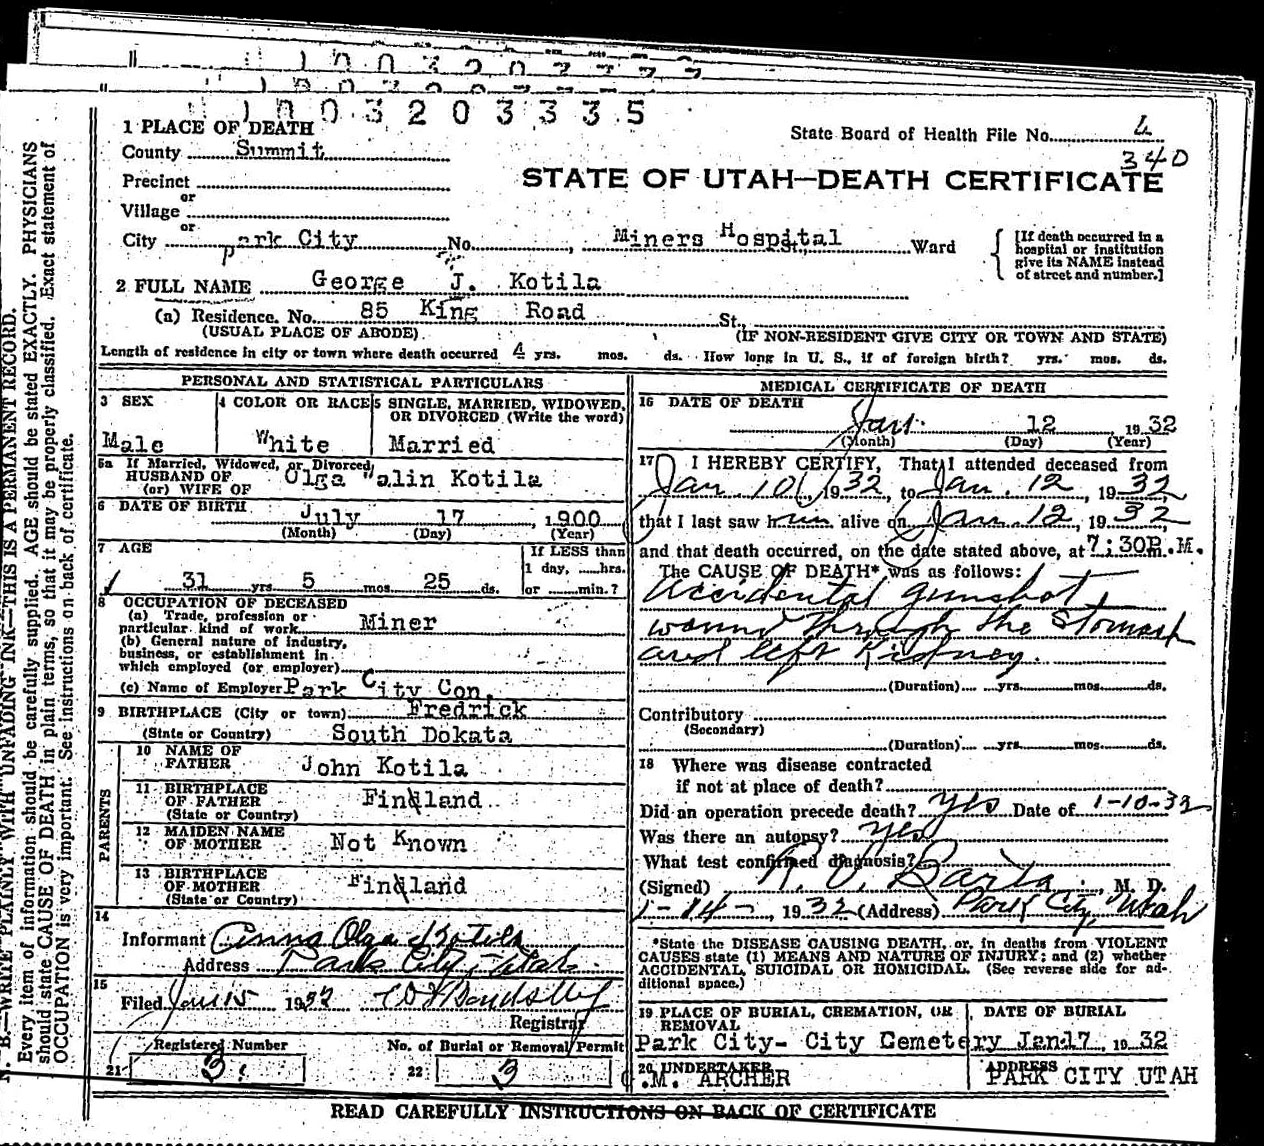 1003203335
1 PLACE OF DEATH
State Board of Health File No. 4
County Summit
340
STATE OF UTAH—DEATH CERTIFICATE
Precinct
or
Village
or
City Park City No. , Miners Hospital Ward
[If death occurred in a hospital or institution give its NAME instead of street and number.]
2 FULL NAME George J. Kotila
(a) Residence. No. 85 King Road St.
(USUAL PLACE OF ABODE) (IF NON-RESIDENT GIVE CITY OR TOWN AND STATE)
Length of residence in city or town where death occurred 4 yrs. mos. ds. How long in U. S., if of foreign birth? yrs. mos. ds.
PERSONAL AND STATISTICAL PARTICULARS
3 SEX 4 COLOR OR RACE 5 SINGLE, MARRIED, WIDOWED, OR DIVORCED (Write the word)
Male White Married
5a If Married, Widowed, or Divorced
HUSBAND OF
(or) WIFE OF Olga Walin Kotila
6 DATE OF BIRTH July 17, 1900
(Month) (Day) (Year)
7 AGE If LESS than
1 day, ......hrs.
31 yrs 5 mos 25 ds. or ......min.?
8 OCCUPATION OF DECEASED
(a) Trade, profession or
particular kind of work Miner
(b) General nature of industry,
business, or establishment in
which employed (or employer)
(c) Name of Employer Park City Con.
9 BIRTHPLACE (City or town) Fredrick
(State or Country) South Dokata
PARENTS
10 NAME OF
FATHER John Kotila
11 BIRTHPLACE
OF FATHER Finland
(State or Country)
12 MAIDEN NAME
OF MOTHER Not Known
13 BIRTHPLACE
OF MOTHER Finland
(State or Country)
14
Informant Anna Olga Kotila
Address Park City, Utah.
15
Filed Jan 15 1932
Registrar
Registered Number No. of Burial or Removal Permit
21 3. 22 3
MEDICAL CERTIFICATE OF DEATH
16 DATE OF DEATH
Jan. 12 1932
(Month) (Day) (Year)
17 I HEREBY CERTIFY, That I attended deceased from
Jan. 10, 1932, to Jan. 12, 1932
that I last saw him alive on Jan. 12, 1932
and that death occurred, on the date stated above, at 7:30P.M.
The CAUSE OF DEATH* was as follows:
Accidental gunshot
wound through the Stomach
and left Kidney.
(Duration) yrs. mos. ds.
Contributory
(Secondary)
(Duration) yrs. mos. ds.
18 Where was disease contracted
if not at place of death?
Did an operation precede death? yes Date of 1-10-32
Was there an autopsy? yes
What test confirmed diagnosis?
(Signed) , M. D.
1-14-, 1932 (Address) Park City, Utah
*State the DISEASE CAUSING DEATH, or, in deaths from VIOLENT
CAUSES state (1) MEANS AND NATURE OF INJURY; and (2) whether
ACCIDENTAL, SUICIDAL OR HOMICIDAL. (See reverse side for ad-
ditional space.)
19 PLACE OF BURIAL, CREMATION, OR REMOVAL DATE OF BURIAL
Park City- City Cemetery Jan 17, 1932
20 UNDERTAKER ADDRESS
.M. ARCHER PARK CITY UTAH
READ CAREFULLY INSTRUCTIONS ON BACK OF CERTIFICATE
N. B.—WRITE PLAINLY, WITH UNFADING INK—THIS IS A PERMANENT RECORD.
Every item of information should be carefully supplied. AGE should be stated EXACTLY. PHYSICIANS
should state CAUSE OF DEATH in plain terms, so that it may be properly classified. Exact statement of
OCCUPATION is very important. See instructions on back of certificate.